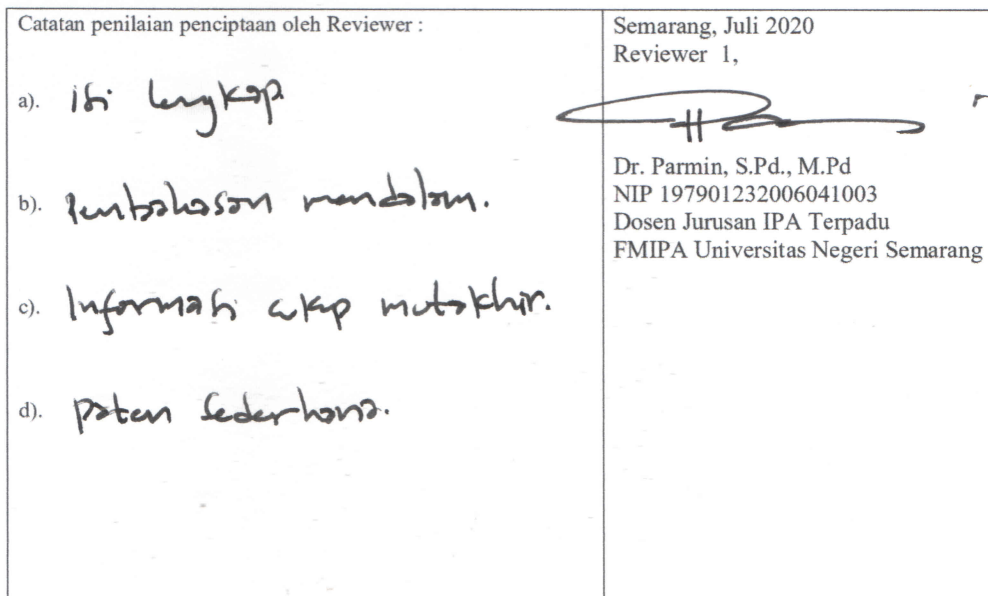 Catatan penilaian penciptaan oleh Reviewer :
a). isi lengkap.
b). Pembahasan mendalam.
c). Informasi cukup mutakhir.
d). paten sederhana.
Semarang, Juli 2020
Reviewer 1,
Dr. Parmin, S.Pd., M.Pd
NIP 197901232006041003
Dosen Jurusan IPA Terpadu
FMIPA Universitas Negeri Semarang